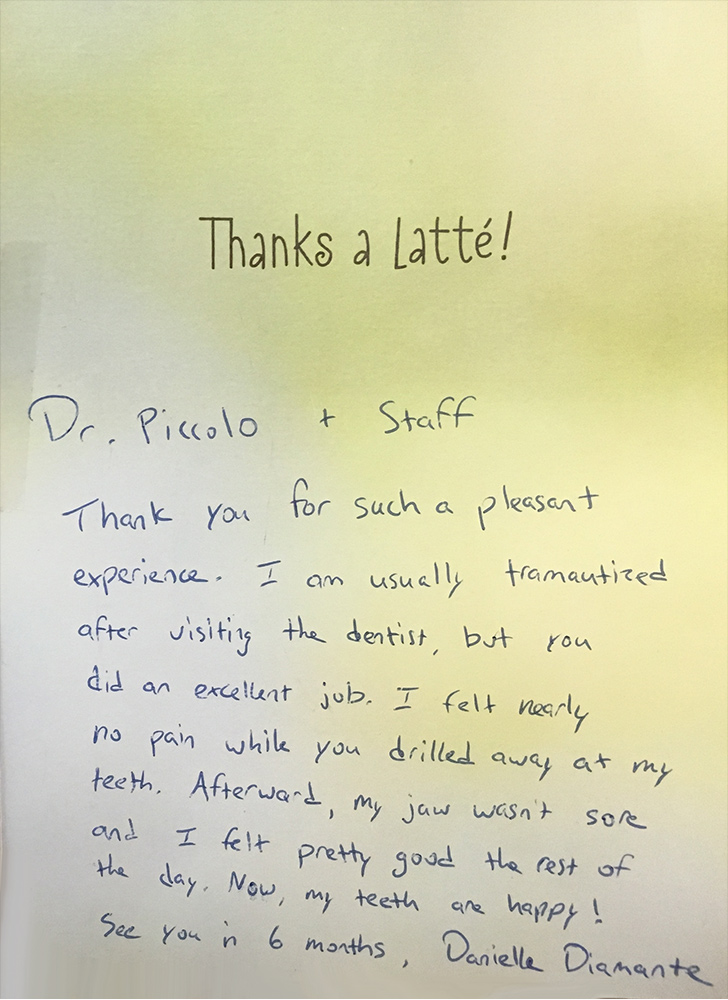 Thanks a Latté!
Dr. Piccolo + Staff
Thank you for such a pleasant
experience. I am usually tramautized
after visiting the dentist, but you
did an excellent job. I felt nearly
no pain while you drilled away at my
teeth. Afterward, my jaw wasn't sore
and I felt pretty good the rest of
the day. Now, my teeth are happy!
See you in 6 months, Danielle Diamante